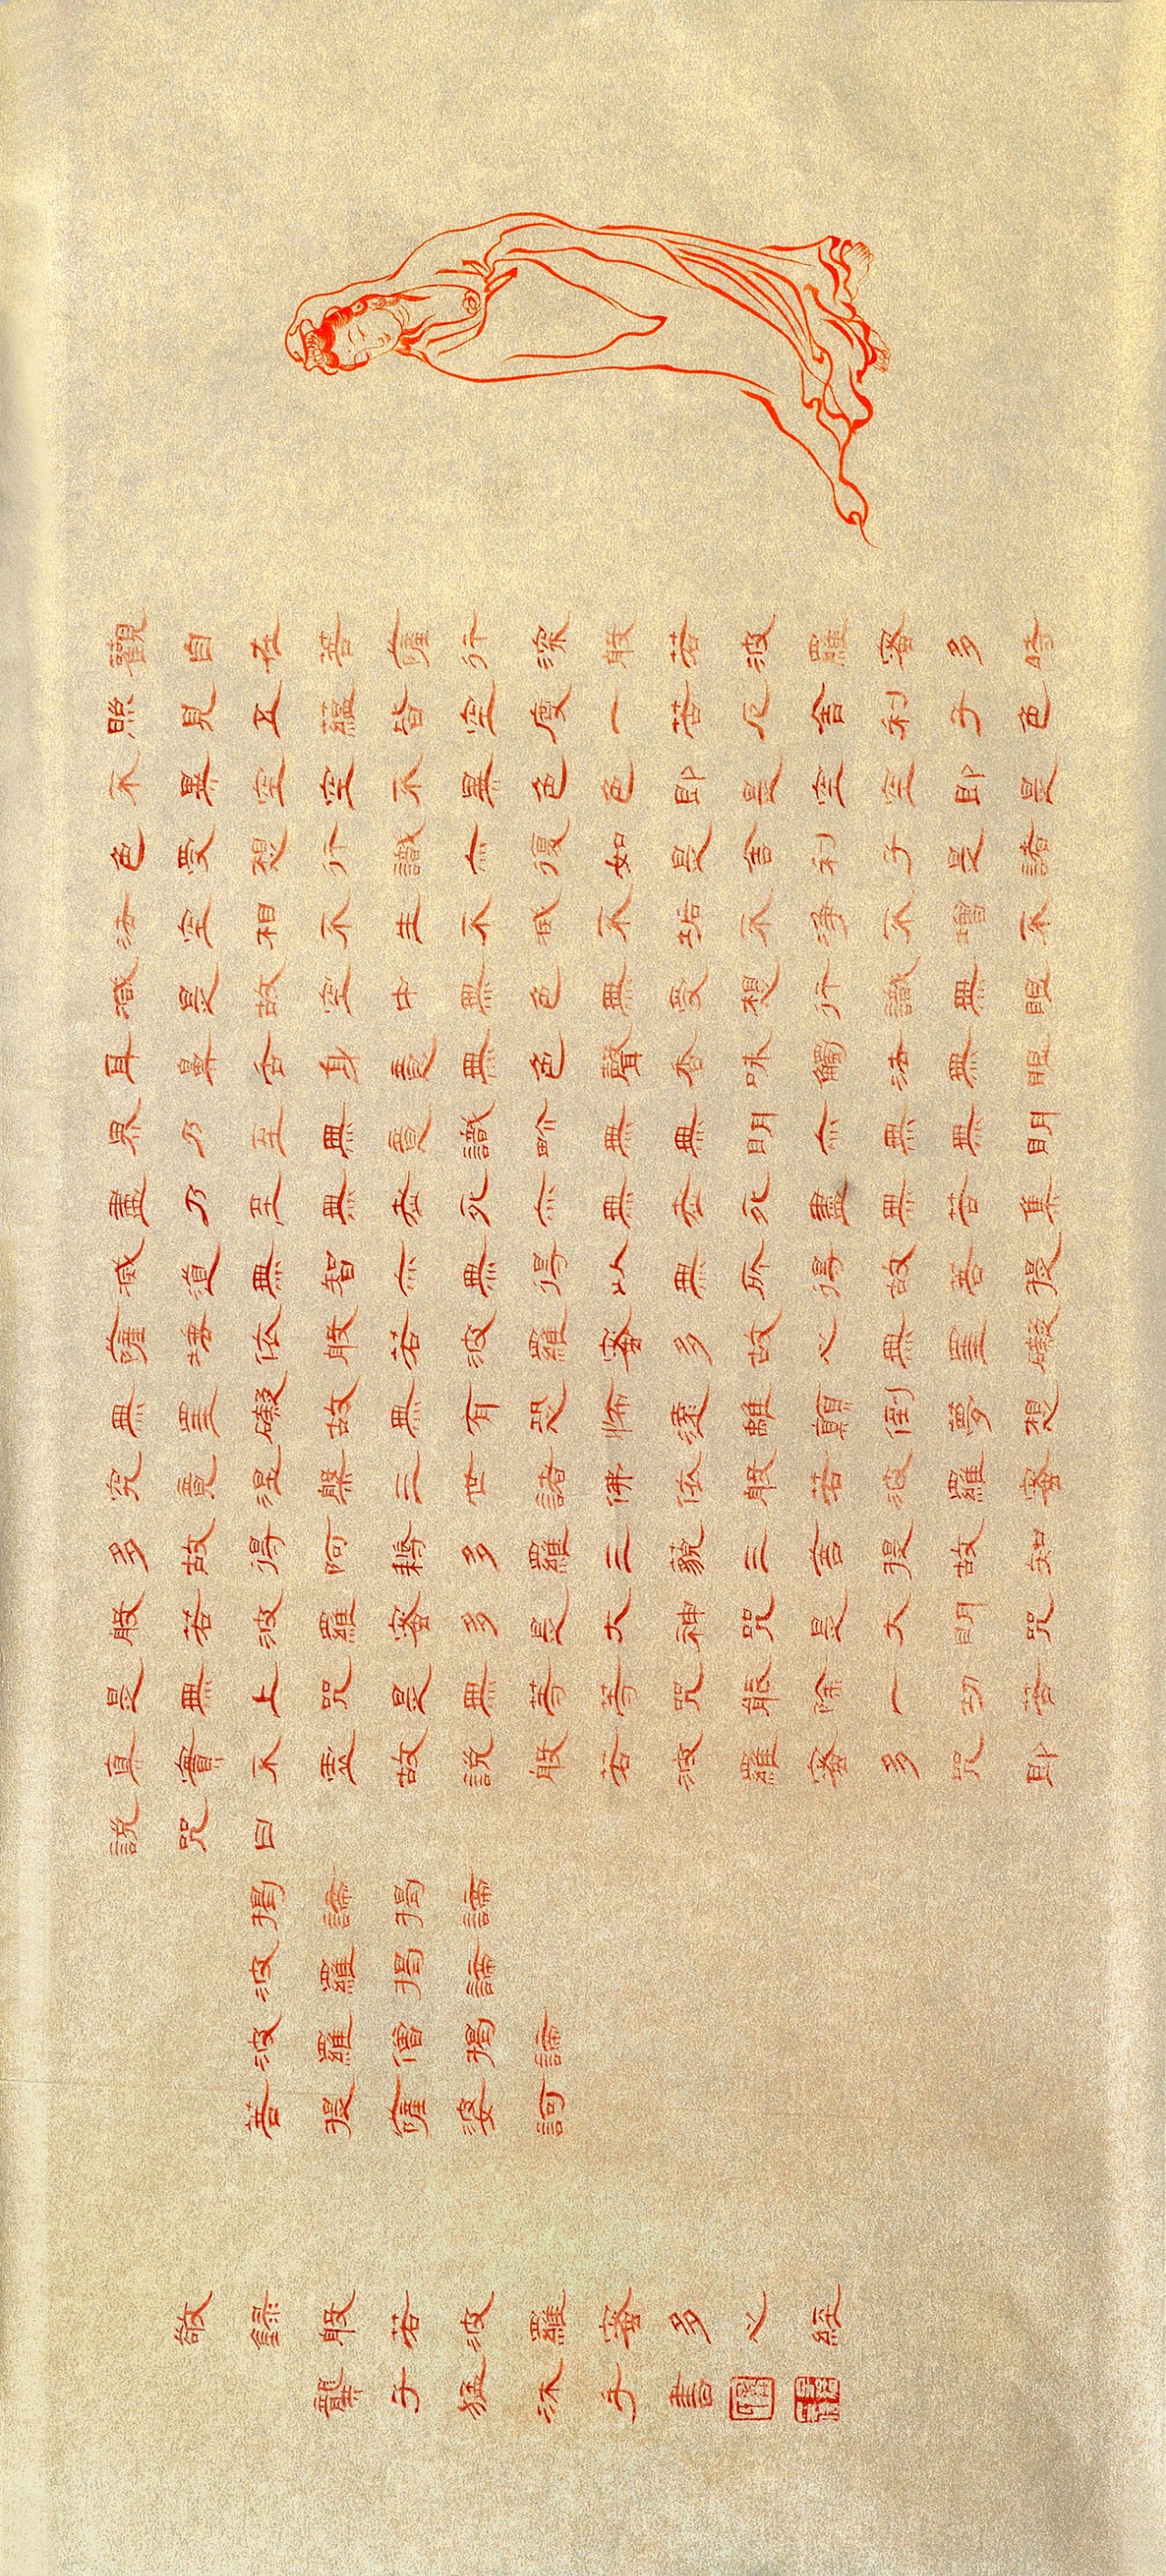 觀自在菩薩行深般若波羅蜜多時
照見五蘊皆空度一苦厄舍利子色
不異空空不異色色即是空空即是
色受想行識亦復如是舍利子是諸
法空相不生不滅不垢不淨不增不
減是故空中無色無受想行識無眼
耳鼻舌身意無色聲香味觸法無眼
界乃至無意識界無無明亦無無明
盡乃至無老死亦無老死盡無苦集
滅道無智亦無得以無所得故菩提
薩埵依般若波羅蜜多故心無罣礙
無罣礙故無有恐怖遠離顛倒夢想
究竟涅槃三世諸佛依般若波羅蜜
多故得阿耨多羅三藐三菩提故知
般若波羅蜜多是大神咒是大明咒
是無上咒是無等等咒能除一切苦
真實不虛故說般若波羅蜜多咒即
說咒曰
揭諦揭諦
波羅揭諦
波羅僧揭諦
菩提薩婆訶
敬錄般若波羅蜜多心經
龔子猛沐手書